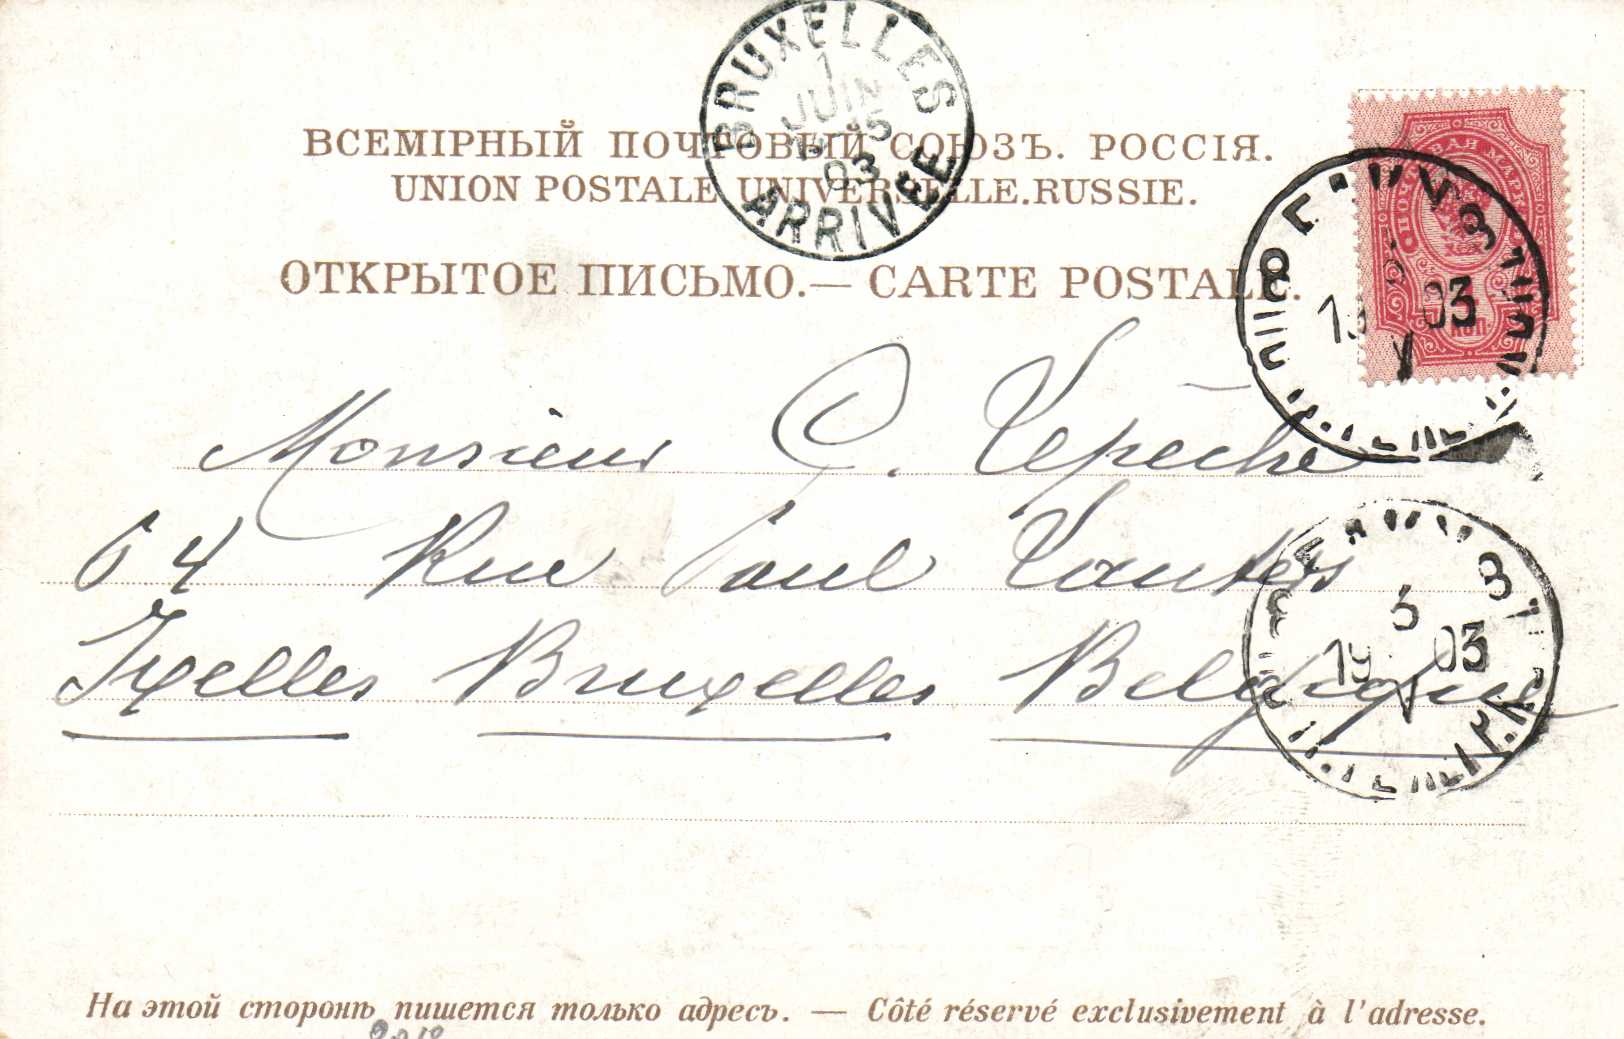 BRUXELLES
1
JUIN
15
03
ARRIVÉE
ВСЕМІРНЫЙ ПОЧТОВЫЙ СОЮЗЪ. РОССІЯ.
UNION POSTALE UNIVERSELLE. RUSSIE.
ОТКРЫТОЕ ПИСЬМО.— CARTE POSTALE.
ПОЧТОВАЯ МАРКА
КОП
19 03
V
Monsieur C. Lepêche
64 Rue Paul Lauters
Ixelles Bruxelles Belgique
3
19 03
V
На этой сторонѣ пишется только адресъ. — Côté réservé exclusivement à l'adresse.